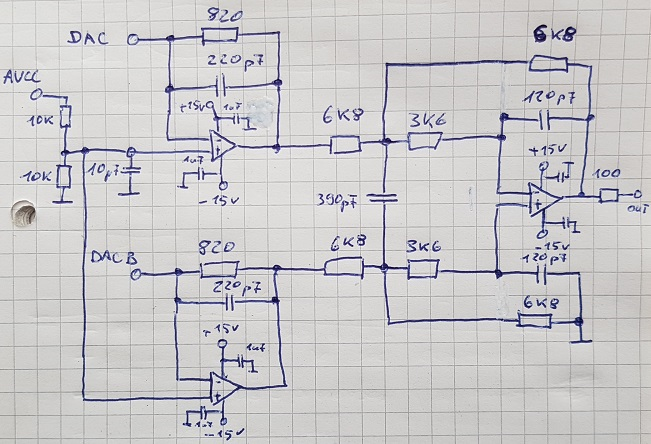 820
6K8
DAC
220p7
AVCC
120p7
+15V
1u7
6K8
3K6
10K
+15V
100
1u7
10K
10p7
-15V
390p7
OUT
-15V
120p7
820
6K8
3K6
DACB
220p7
6K8
+15V
1u7
1u7
-15V